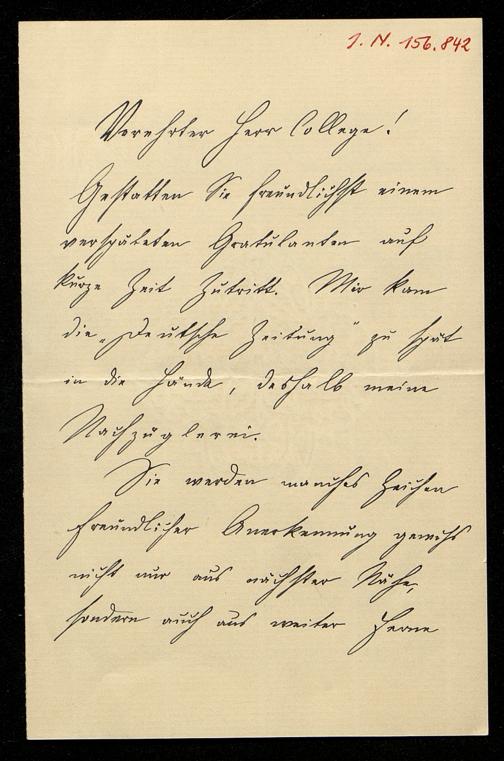 J. N. 156.842
Verehrter Herr College!
Gestatten Sie freundlichst einem
verspäteten Gratulanten auf
kurze Zeit Zutritt. Mir kam
die „Deutsche Zeitung“ zu spät
in die Hände, deshalb meine
Nachzüglerei.
Sie werden manches Zeichen
freundlicher Anerkennung gewiß
nicht nur aus nächster Nähe,
sondern auch aus weiter Ferne